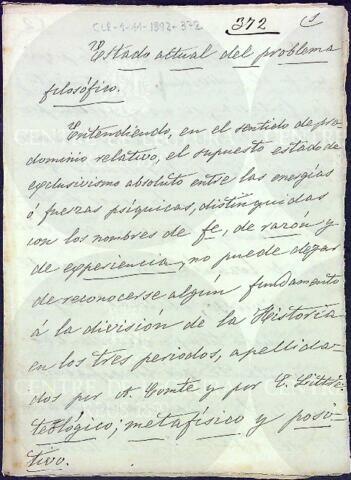 CLE-9-M-1892-372
372
(1
Estado actual del problema
filosófico.
Entendiendo, en el sentido de pre-
dominio relativo, el supuesto estado de
exclusivismo absoluto entre las energías
ó fuerzas psíquicas, distinguidas
con los nombres de fe, de razón y
de experiencia, no puede dejar
de reconocerse algún fundamento
á la división de la Historia
en los tres periodos, apellida-
dos por A. Comte y por E. Littré:
teológico; metafísico y posi-
tivo.